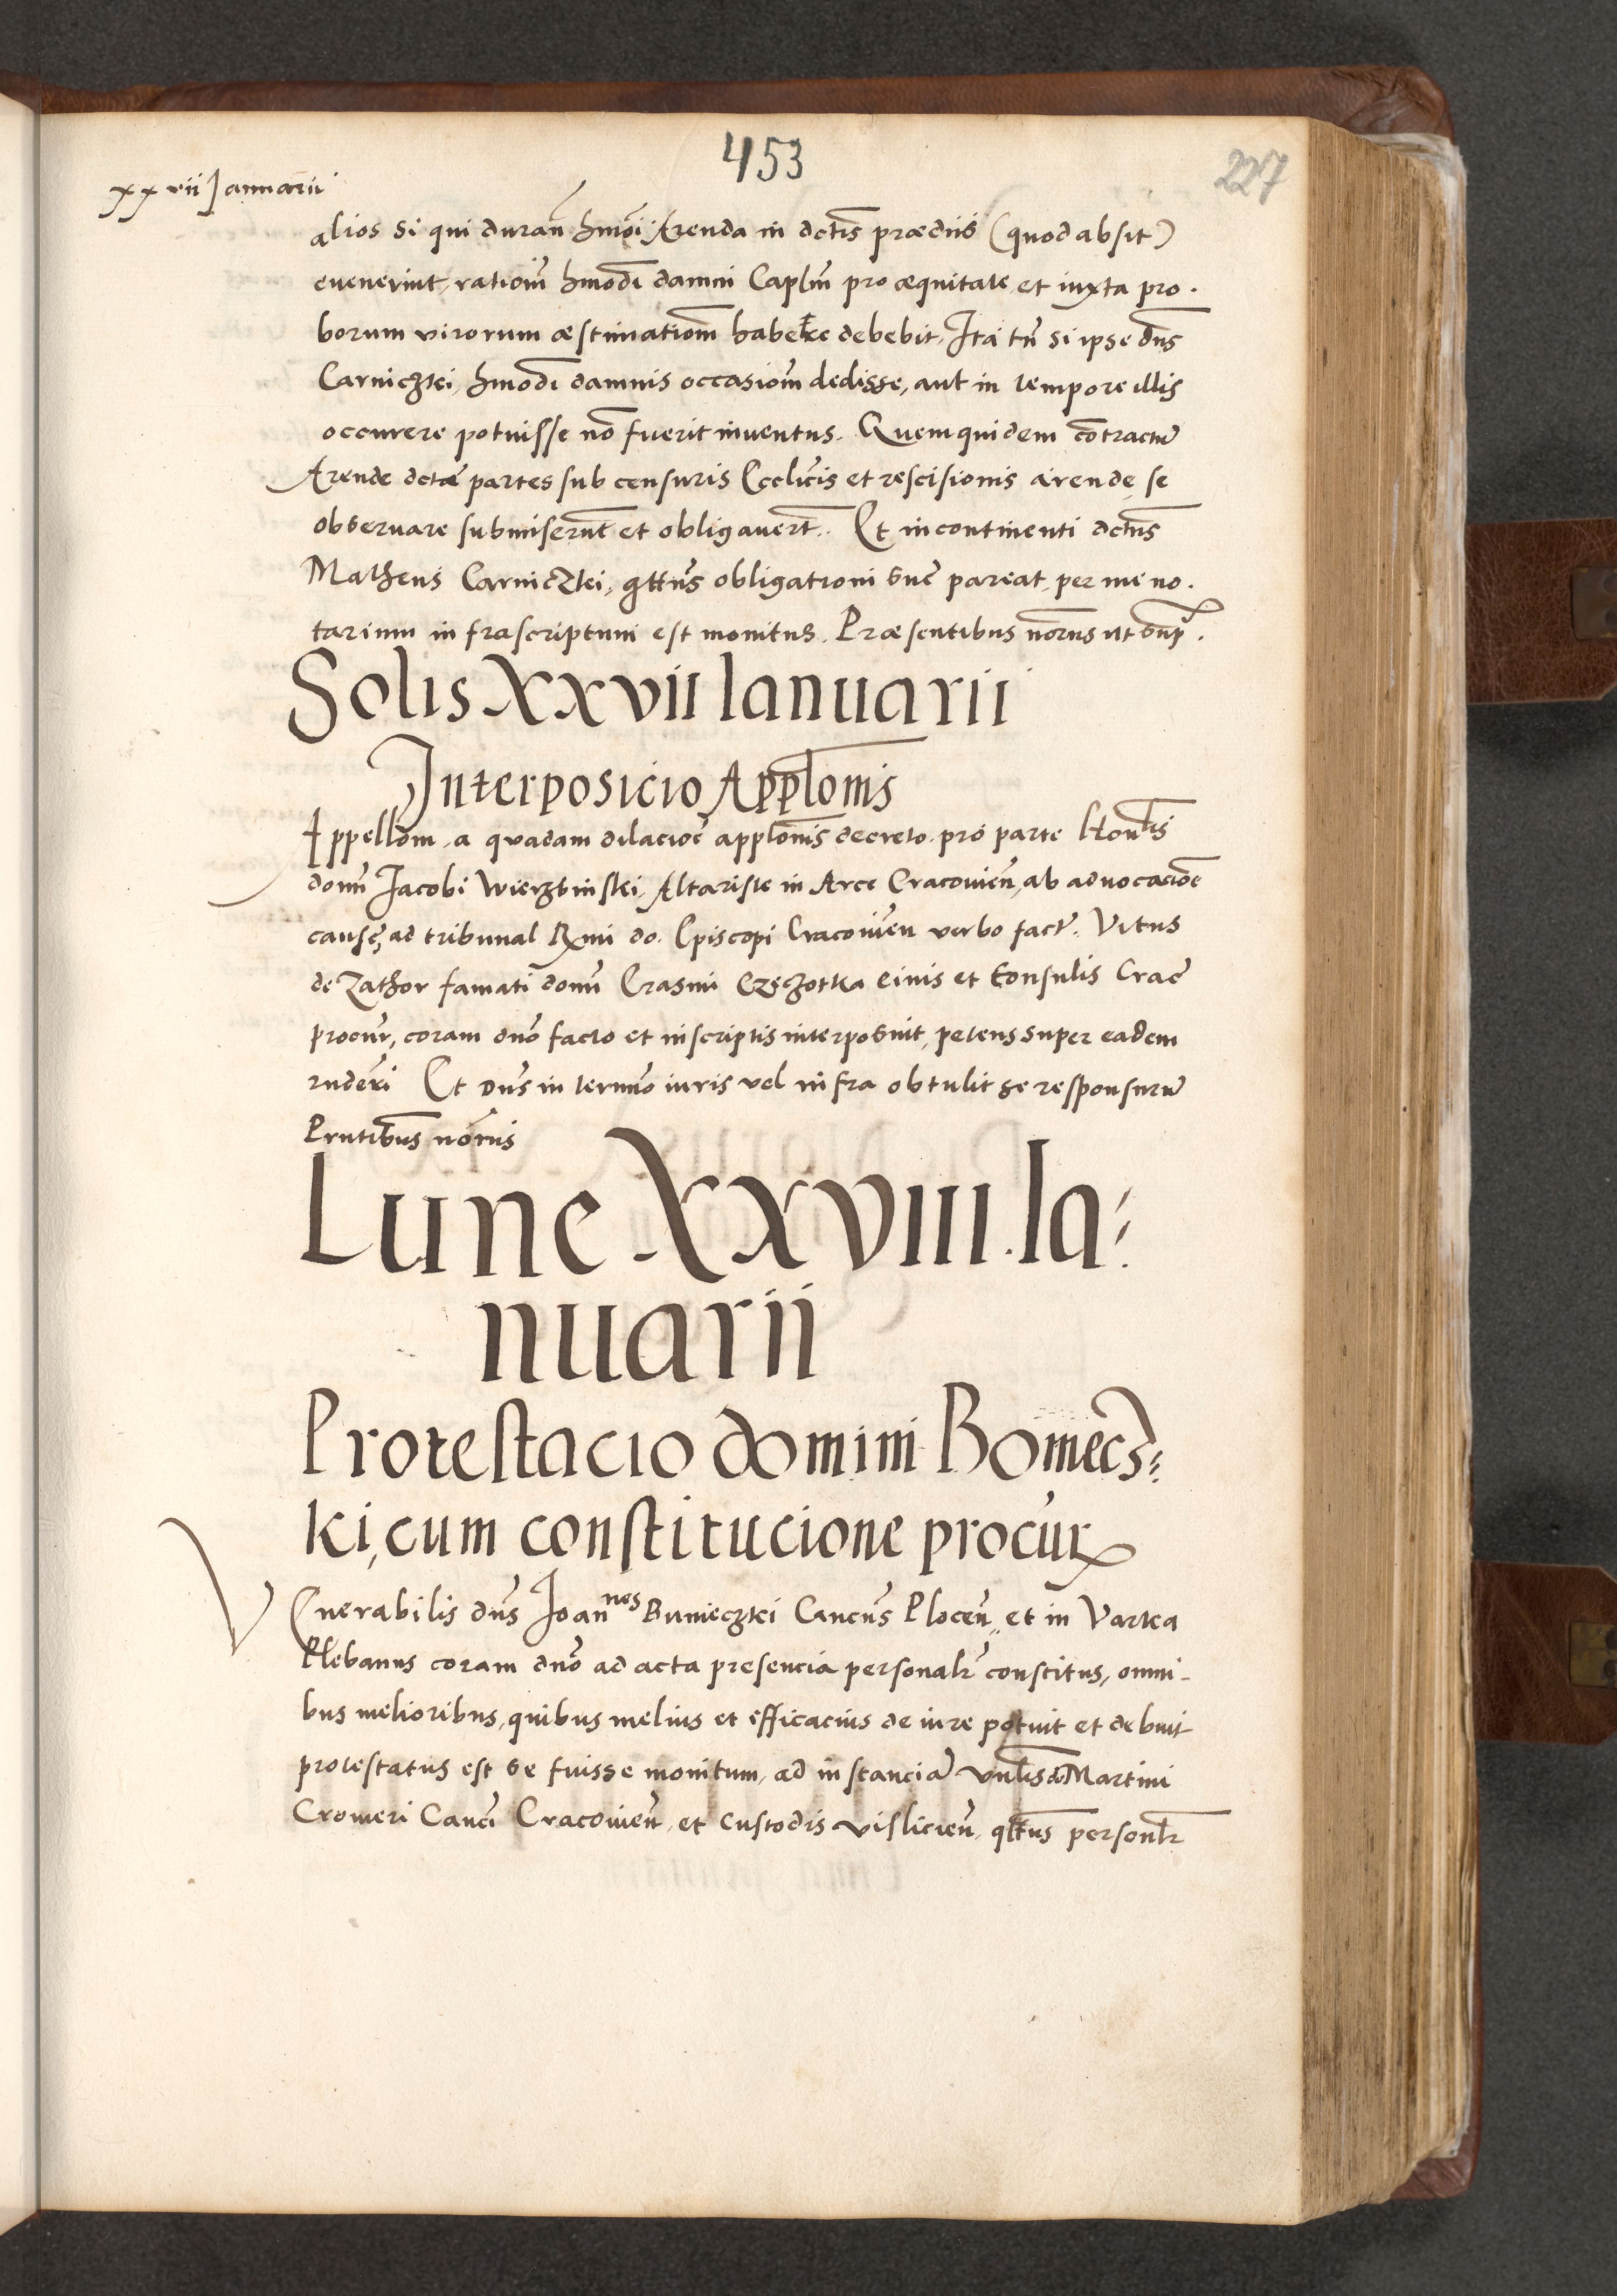 453
227
xxvii Januarii
alios si qui duran̄ hm̄oi Arenda in dctīs prædiis (quod absit)
evenerint, rationȳ hmodī damni Caplm̄ pro æquitate, et iuxta pro.
borum virorum æstimationē habere debebit, Ita tn̄ si ipse dn̄s
Carniczki, hmodī damnis occasionē dedisse, aut in tempore illis
occurrere potuisse nō fuerit inventus. Quemquidem cōtractū
Arende dctæ partes sub censuris Ecclīcis et rescisionis arendę se
observare submiserūt et obligaverт̄. Et incontinenti dctūs
Matheus Carniczki, qttn̄s obligationi suē pareat, per me no.
tarium infrascriptum est monitus. Præsentibus nōrīis ut sup̄.
Solis XXVII Ianuarii
Interposicio Applōnis
Appellōm, a quadam dilaciōe applōnis decreto, pro parte Honlīs
domī Jacobi Wierzbinski, Altariste in Arce Cracoviēn, ab advocaciōe
causę, ad tribunal Rmi do. Episcopi Cracoviēn verbo fact. Vitus
de Zathor famati domī Erasmi Czeczotka Civis et Consulis Crac̄
procur̄, coram dnō facto et in scriptis interposuit, petens super eadem
rnderī Et Dn̄s in termīo iuris vel infra obtulit se responsurū
Prntibūs nōriis
Lune XXVIII. Ia=
nuarii
Protestacio domini Bomecz=
ki, cum constitucione procur
Venerabilis dn̄s Joannes Bunieczki Cancūs Plocēn, et in Vartca
Plebanus coram dnō ad acta presencia personalr̄ constitus, omni-
bus melioribus, quibus melius et efficacius de iure potuit et debuit
protestatus est se fuisse monitum, ad instanciā Vnlīs d Martini
Cromeri Cancī Cracoviēn, et Custodis Visliciēn, qttūs personlr̄